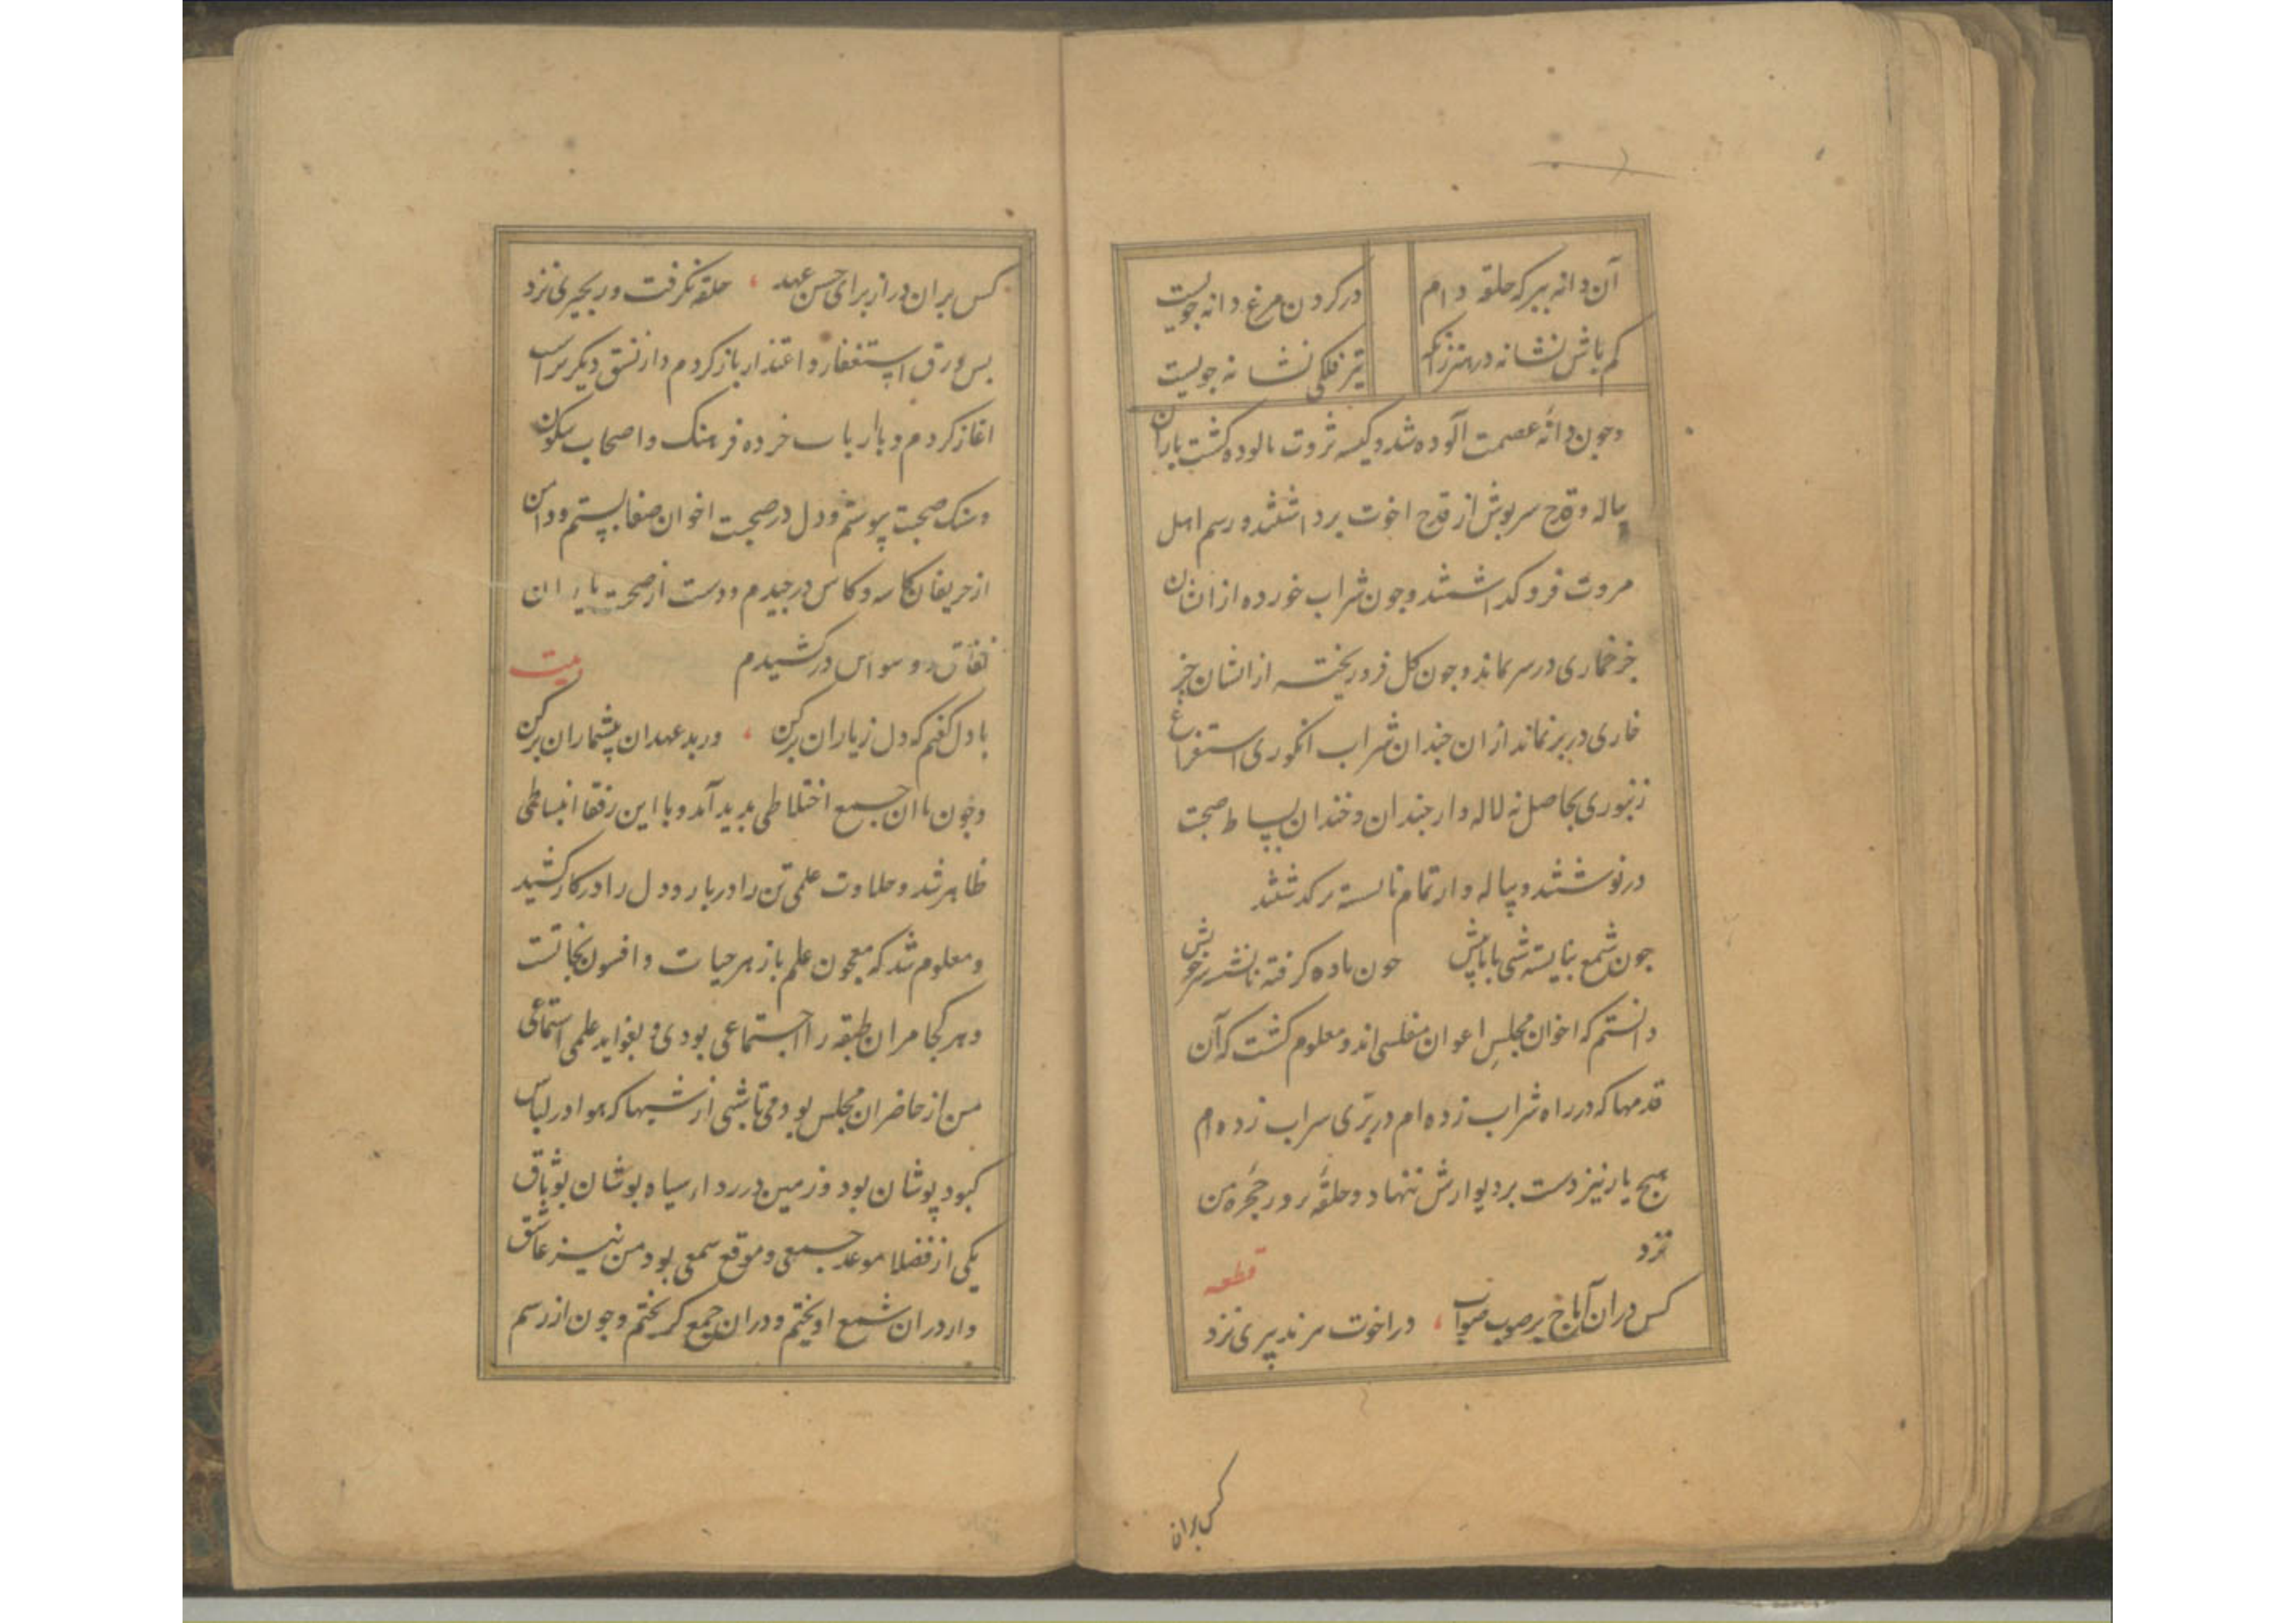 آن دانه ببر که حلقه دام
در کردن مرغ دانه جویست
کم باش نشانه در هنر زانکه
تیر فلکی نشانه جویست
وجون دانهٔ عصمت آلوده شد و کیسه ثروت بالوده کشت یاران
پیاله و قدح سربوش از قدح اخوت برداشتند و رسم اهل
مروت فرو کداشتند وجون شراب خورده از انشان
جز خماری در سر نماند وجون کل فرو ریخته از انشان جز
خاری در بر نماند از ان جندان شراب انکوری استفراغ
زنبوری بحاصل نه لاله وار جندان و خندان بساط صحبت
درنوشتند و پیاله وار تمام نانشسته برکدشتند
جون شمع بنایسته شی با ما پیش
جون باده کرفته نانشر سر خویش
دانستم که اخوان مجلسِ اعوان مفلسی اند و معلوم کشت که آن
قدمها که در راه شراب زده ام در برّی سراب زده ام
هیج یار نیز دست بر دیوارش ننهاد و حلقهٔ بر در حجره من
نزد
قطعه
کس دران آماج بر صوب صواب ، در اخوت سر ند پیری نزد
کس بران
کس بران در از برای حسن عهد ، حلقه نکرفت و زنجیری نزد
بس ورق استغفار و اعتذار باز کردم و از نسق دیکر براب
اغاز کردم و با ارباب خرد و فرهنک و اصحاب سکون
وسنک صحبت پیوستم و دل در صحبت اخوان صفا ببستم ودامن
از حریفان کاسه و کاس درجیدم و دست از صحبت یاران
نفاق و وسواس درکشیدم
بیت
با دل کفتم که دل ز یاران برکن ، وز بد عهدان پیشماران برکن
وجون با ان جمع اختلاطی بدید آمد و با این رفقا انبساطی
ظاهر شد و حلاوت علمی تن را در بار و دل را در کار کشید
و معلوم شد که معجون علم بازهر حیات و افسون نجاتست
و هر کجا مر ان طبقه را اجتماعی بودی و بفواید علمی استماعی
من از حاضران مجلس بودمی تا شبی از شبها که هوا در لباس
کبود پوشان بود و زمین در رداء سیاه بوشان بوثاق
یکی از فضلا موعد جمعی و موقع سمعی بود من نیز عاشق
وار دران شمع اویختم و دران جمع کریختم وجون از رسم